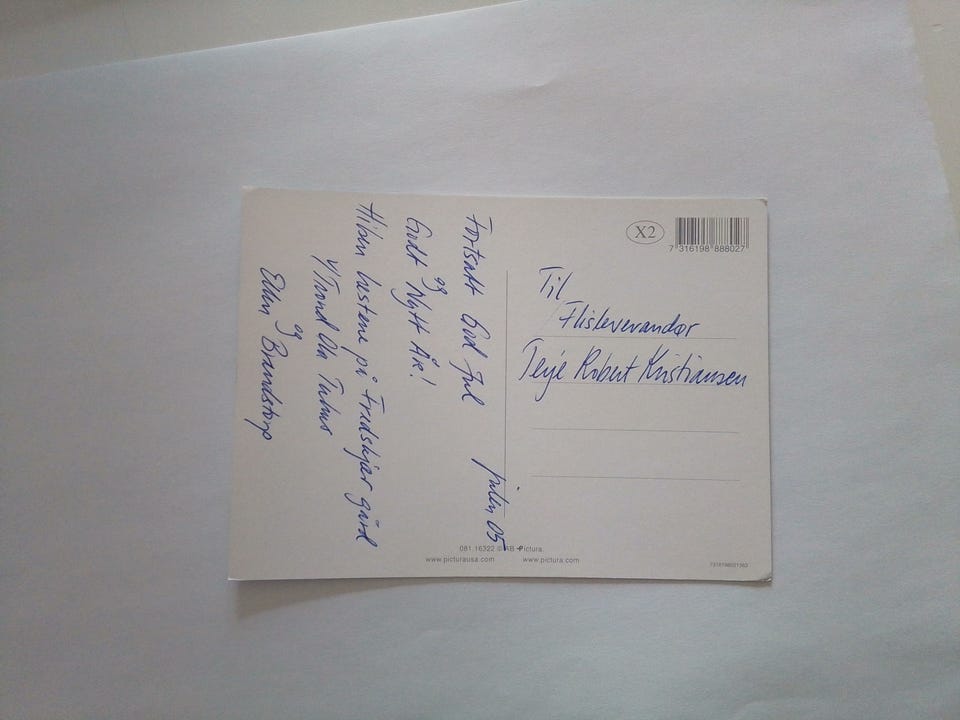 X2
7 316198 888027
Til
Flisleverandør
Terje Robert Kristiansen
julen 05
Fortsatt God Jul
og
Godt Nytt År!
Hilsen hestene på Fredskjær gård
v/Trond Ola
og
Ellen Brandstorp
081.16322 © AB Pictura.
www.picturausa.com www.pictura.com